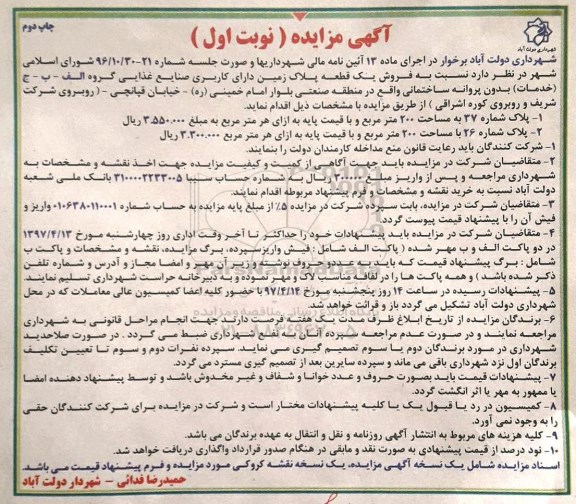 چاپ دوم
آگهی مزایده ( نوبت اول )
شهرداری دولت آباد
شهرداری دولت آباد برخوار در اجرای ماده ۱۳ آئین نامه مالی شهرداریها و صورت جلسه شماره ۲۱-۹۶/۱۰/۳۰ شورای اسلامی
شهر در نظر دارد نسبت به فروش یک قطعه پلاک زمین دارای کاربری صنایع غذایی گروه الف - ب - ج
(خدمات) بدون پروانه ساختمانی واقع در منطقه صنعتی بلوار امام خمینی (ره) - خیابان قپانچی - (روبروی شرکت
شریف و روبروی کوره اشراقی ) از طریق مزایده با مشخصات ذیل اقدام نماید.
۱- پلاک شماره ۳۷ به مساحت ۲۰۰ متر مربع و با قیمت پایه به ازای هر متر مربع به مبلغ ۳.۵۵۰.۰۰۰ ریال
۲- پلاک شماره ۲۶ با مساحت ۲۰۰ متر مربع و با قیمت پایه به ازای هر متر مربع ۳.۳۰۰.۰۰۰ ریال
۱- شرکت کنندگان باید رعایت قانون منع مداخله کارمندان دولت را بنمایند.
۲- متقاضیان شرکت در مزایده باید جهت آگاهی از کمیت و کیفیت مزایده جهت اخذ نقشه و مشخصات به
شهرداری مراجعه و پس از واریز مبلغ ریال به شماره حساب سیبا ۳۱۰۰۰۰۲۲۳۳۰۰۵ بانک ملی شعبه
دولت آباد نسبت به خرید نقشه و مشخصات و فرم پیشنهاد مربوطه اقدام نمایند.
۳- متقاضیان شرکت در مزایده، بابت سپرده شرکت در مزایده ۵٪ از مبلغ پایه مزایده به حساب شماره ۰۱۰۶۳۸۰۱۱۰۰۰۱ واریز و
فیش آن را با پیشنهاد قیمت پیوست گردد.
۴- متقاضیان شرکت در مزایده باید پیشنهادات خود را حداکثر تا آخر وقت اداری روز چهارشنبه مورخ ۱۳۹۷/۴/۱۳
در دو پاکت الف و ب مهر شده ( پاکت الف شامل : فیش واریز سپرده، برگ مزایده، نقشه و مشخصات و پاکت ب
شامل : برگ پیشنهاد قیمت که باید به عدد و حروف نوشته و زیر آن مهر و امضا مجاز و آدرس و شماره تلفن
ذکر شده باشد ) و همه پاکت ها را در لفاف مناسب لاک و مهر نموده و به دبیرخانه حراست شهرداری تسلیم نمایند.
۵- پیشنهادات رسیده در ساعت ۱۴ روز پنجشنبه مورخ ۹۷/۴/۱۴ با حضور کلیه اعضا کمیسیون عالی معاملات که در محل
شهرداری دولت آباد تشکیل می گردد باز و قرائت خواهد شد.
۶- برندگان مزایده از تاریخ ابلاغ ظرف مدت یک هفته فرصت دارند جهت انجام مراحل قانونی به شهرداری
مراجعه نمایند و در صورت عدم مراجعه سپرده آنان به نفع شهرداری ضبط می گردد . در صورت صلاحدید
شهرداری در مورد برندگان دوم یا سوم تصمیم گیری می نمایند. سپرده نفرات دوم و سوم تا تعیین تکلیف
برندگان اول نزد شهرداری باقی می ماند و سپرده سایرین بعد از تصمیم گیری مسترد می گردد.
۷- پیشنهادات قیمت باید بصورت حروف و عدد خوانا و شفاف و غیر مخدوش باشد و توسط پیشنهاد دهنده امضا
یا ممهور به مهر یا اثر انگشت گردد.
۸- کمیسیون در رد یا قبول یک یا کلیه پیشنهادات مختار است و شرکت در مزایده برای شرکت کنندگان حقی
را به وجود نمی آورد.
۹- کلیه هزینه های مربوط به انتشار آگهی روزنامه و نقل و انتقال به عهده برندگان می باشد.
۱۰- نود درصد از قیمت پیشنهادی به صورت نقد و مابقی در هنگام صدور قرارداد واگذاری دریافت خواهد شد.
اسناد مزایده شامل یک نسخه آگهی مزایده، یک نسخه نقشه کروکی مورد مزایده و فرم پیشنهاد قیمت می باشد.
حمیدرضا فدائی - شهردار دولت آباد